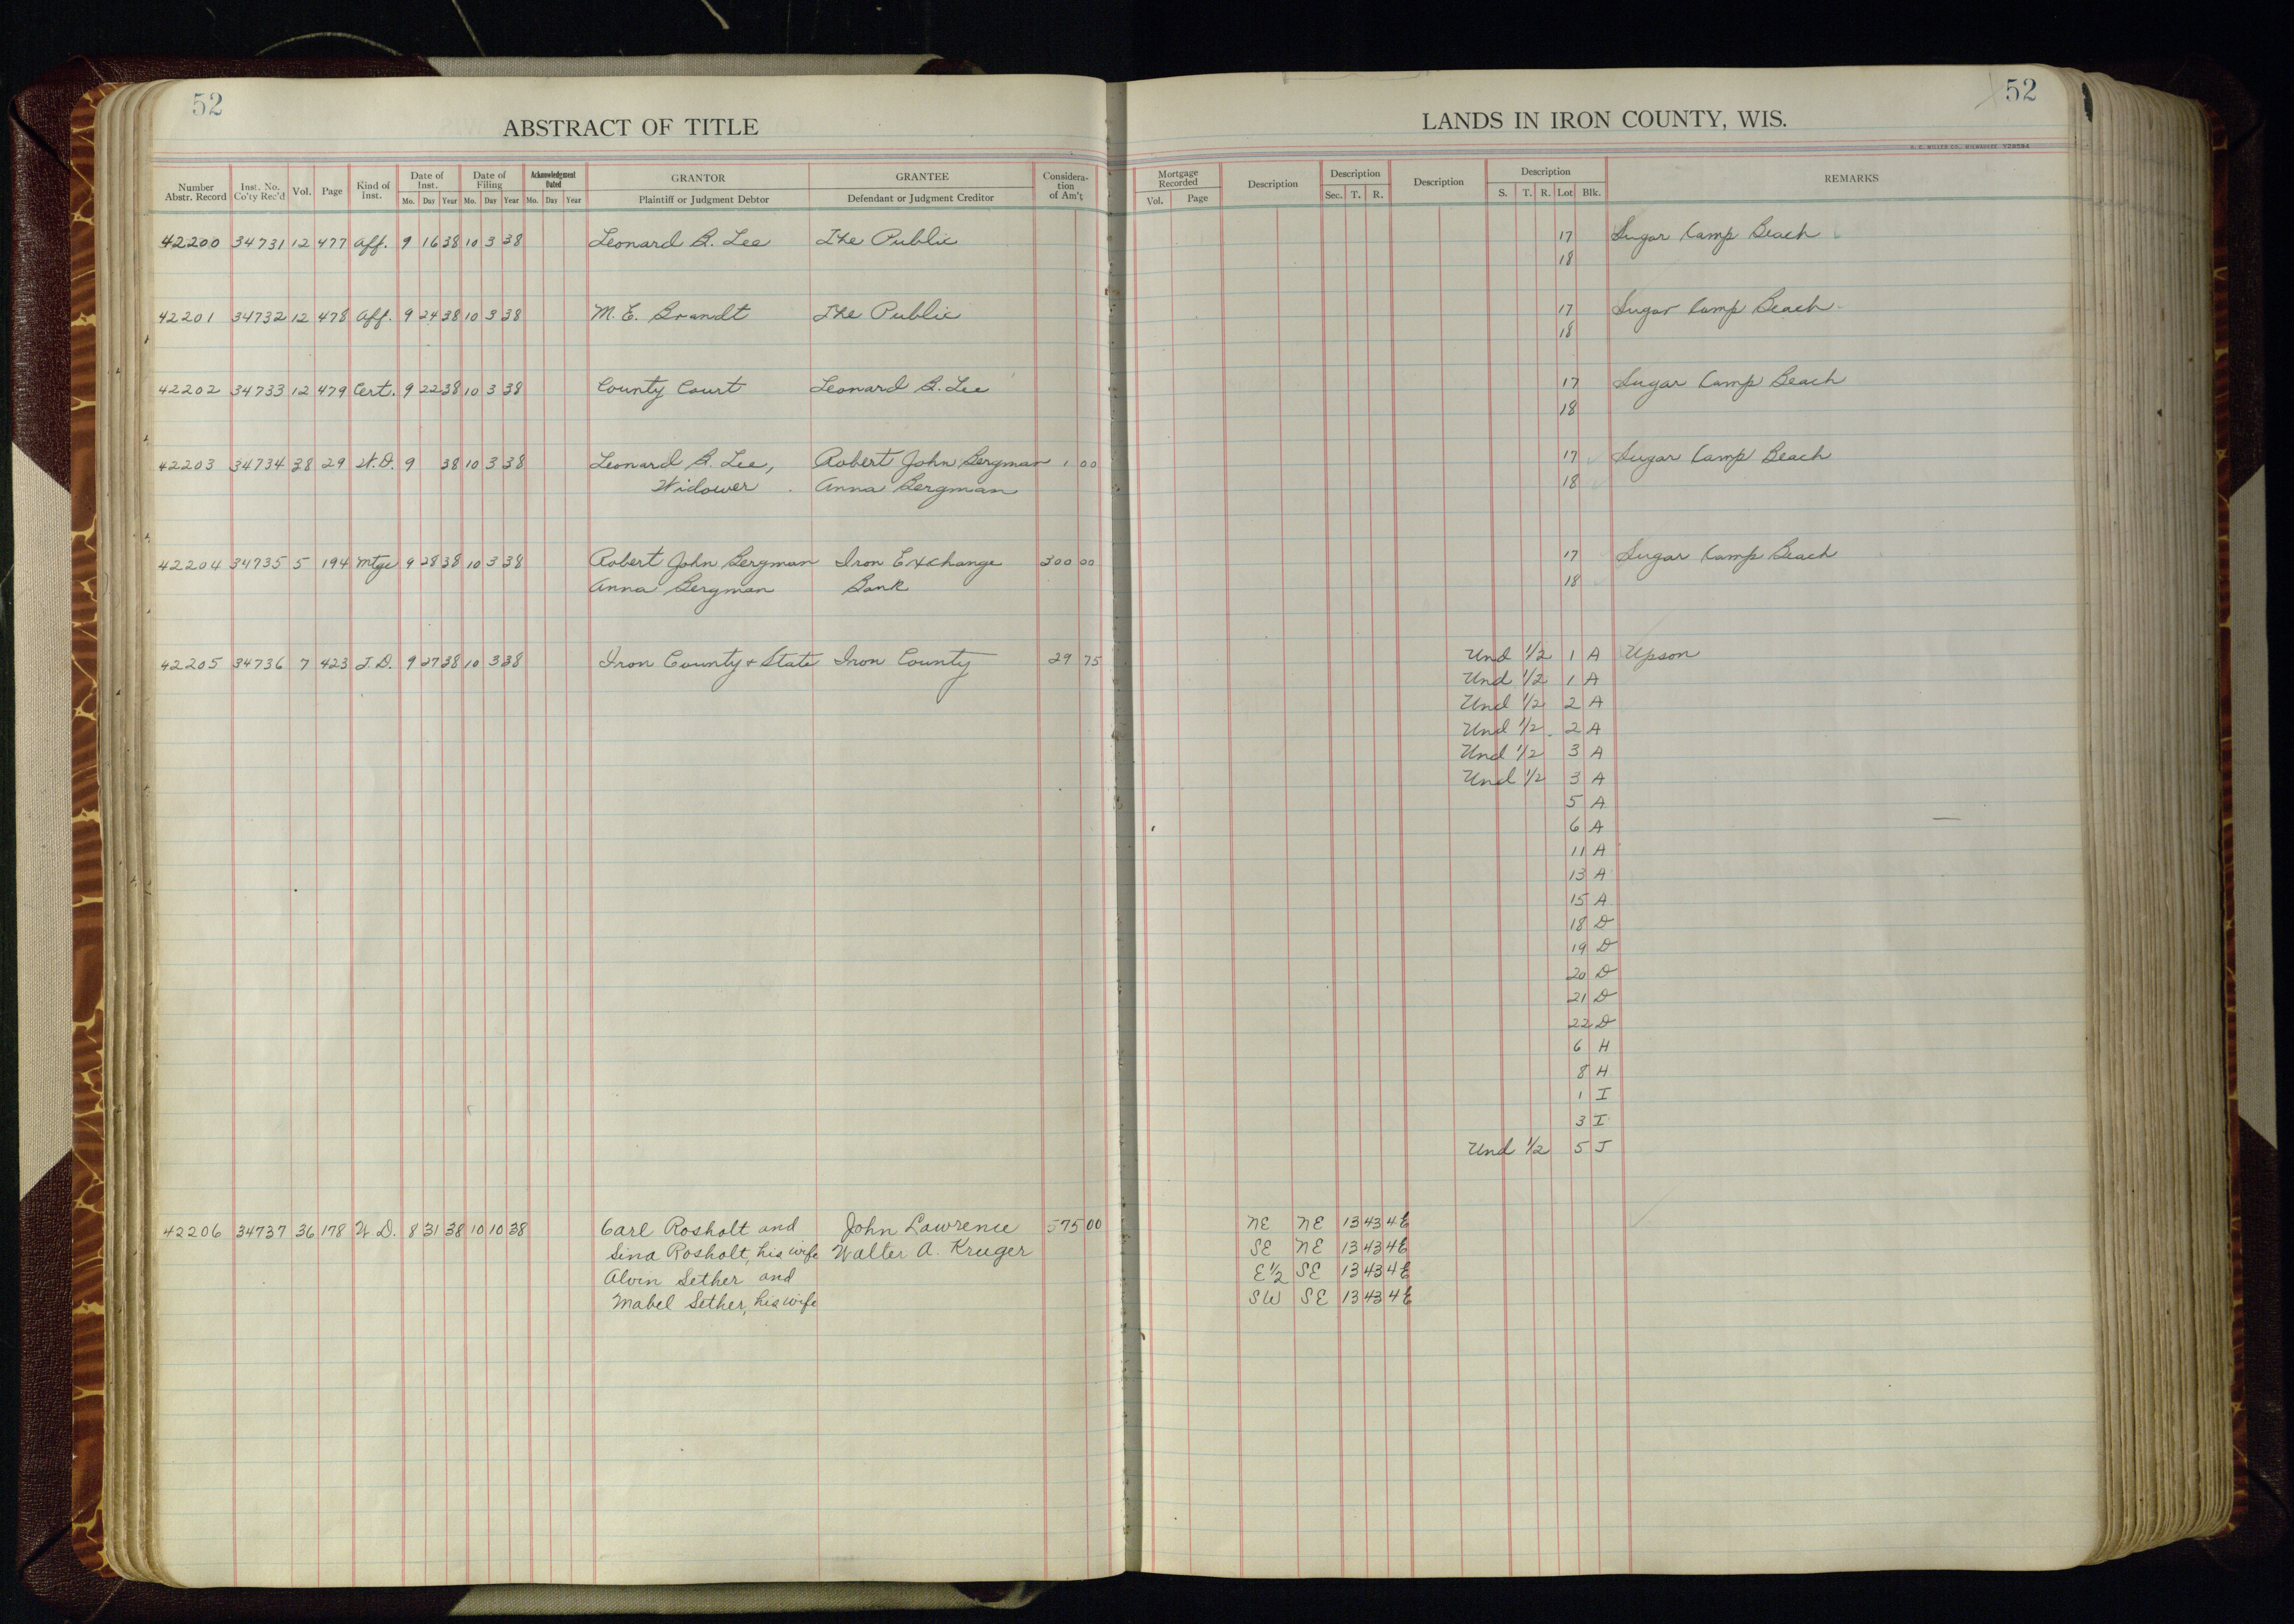 52
ABSTRACT OF TITLE
Number Abstr. Record Inst. No. Co'ty Rec'd Vol. Page Kind of Inst. Date of Inst. Mo. Day Year Date of Filing Mo. Day Year Acknowledgment Dated Mo. Day Year GRANTOR Plaintiff or Judgment Debtor GRANTEE Defendant or Judgment Creditor Consideration of Am't
42200 34731 12 477 Aff. 9 16 38 10 3 38 Leonard B. Lee The Public
42201 34732 12 478 Aff. 9 24 38 10 3 38 M. E. Brandt The Public
42202 34733 12 479 Cert. 9 22 38 10 3 38 County Court Leonard B. Lee
42203 34734 38 29 W.D. 9 38 10 3 38 Leonard B. Lee, Robert John Bergman 1 00
Widower Anna Bergman
42204 34735 5 194 Mtge 9 28 38 10 3 38 Robert John Bergman Iron Exchange 300 00
Anna Bergman Bank
42205 34736 7 423 T.D. 9 27 38 10 3 38 Iron County & State Iron County 29 75
42206 34737 36 178 W.D. 8 31 38 10 10 38 Carl Rosholt and John Lawrence 575 00
Sina Rosholt, his wife Walter A. Kruger
Alvin Sether and
Mabel Sether, his wife
52
LANDS IN IRON COUNTY, WIS.
H. C. MILLER CO., MILWAUKEE
Mortgage Recorded Vol. Page Description Description Sec. T. R. Description Description S. T. R. Lot Blk. REMARKS
17 Sugar Camp Beach
18
17 Sugar Camp Beach
18
17 Sugar Camp Beach
18
17 Sugar Camp Beach
18
17 Sugar Camp Beach
18
Und 1/2 1 A Upson
Und 1/2 1 A
Und 1/2 2 A
Und 1/2 2 A
Und 1/2 3 A
Und 1/2 3 A
5 A
6 A
11 A
13 A
15 A
18 D
19 D
20 D
21 D
22 D
6 H
8 H
1 I
3 I
Und 1/2 5 J
NE NE 13 43 4E
SE NE 13 43 4E
E 1/2 SE 13 43 4E
SW SE 13 43 4E